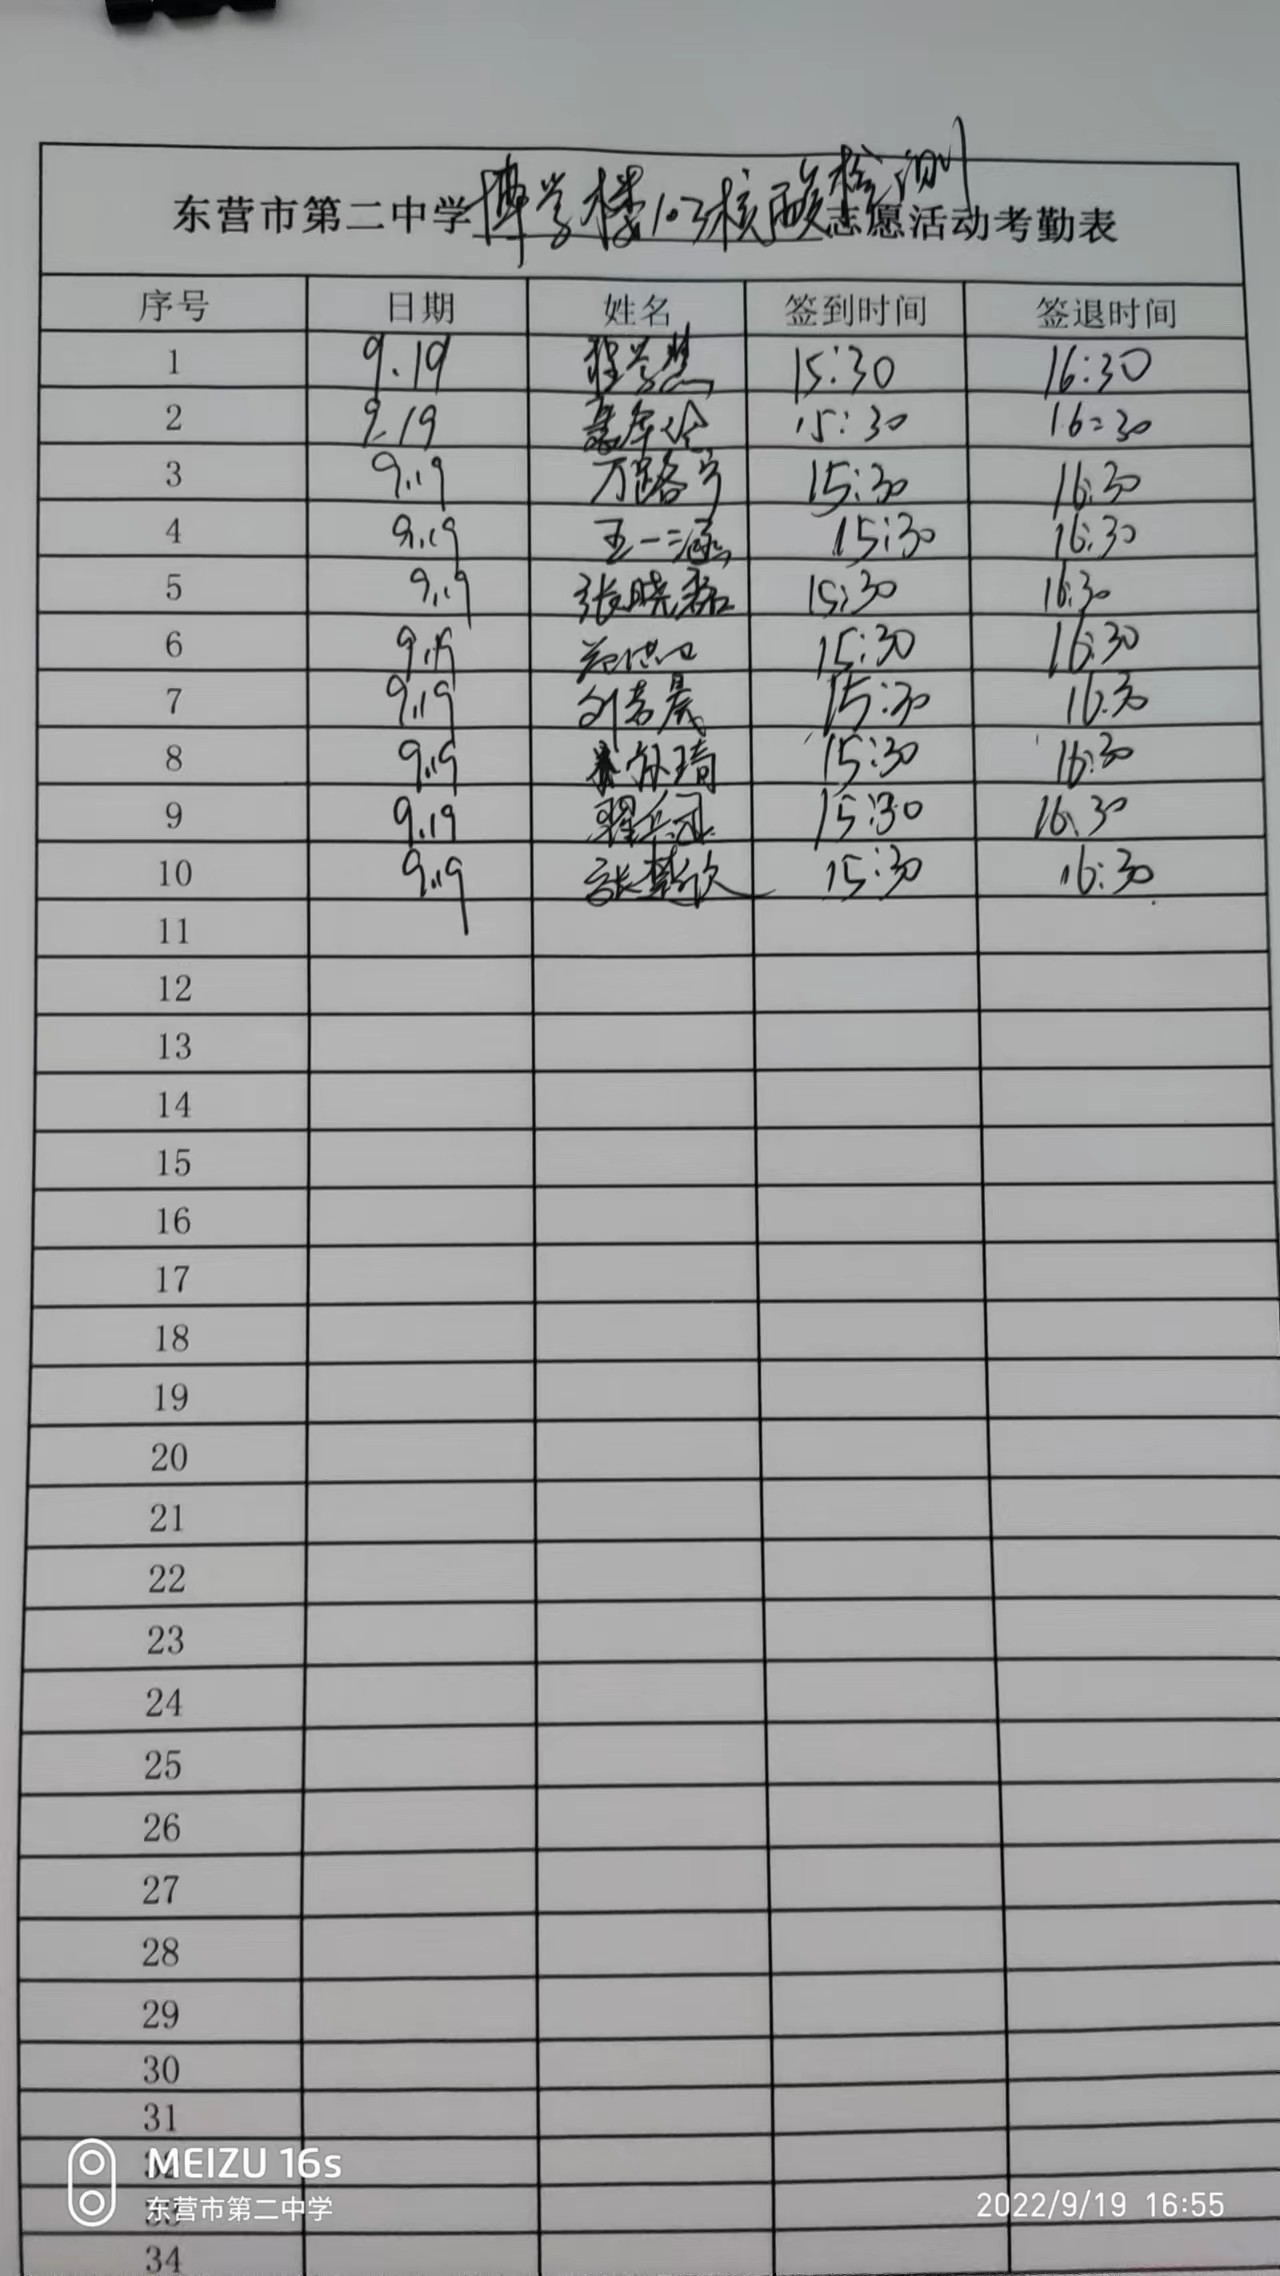 东营市第二中学博学楼103核酸检测志愿活动考勤表
序号 日期 姓名 签到时间 签退时间
1 9.19 15:30 16:30
2 9.19 15:30 16:30
3 9.19 万路宁 15:30 16:30
4 9.19 王一涵 15:30 16:30
5 9.19 张晓磊 15:30 16:30
6 9.19 15:30 16:30
7 9.19 刘若晨 15:30 16:30
8 9.19 15:30 16:30
9 9.19 15:30 16:30
10 9.19 15:30 16:30
11
12
13
14
15
16
17
18
19
20
21
22
23
24
25
26
27
28
29
30
31
32
MEIZU 16s
33
东营市第二中学 2022/9/19 16:55
34